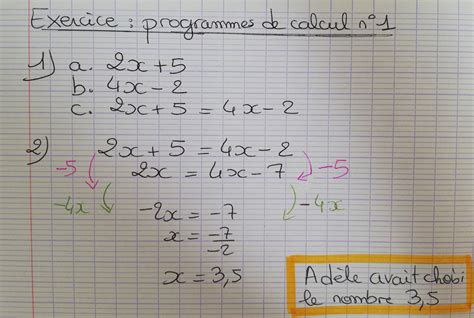 Exercice : programmes de calcul n°1
1) a. 2x+5
b. 4x-2
c. 2x+5 = 4x-2
2) 2x+5 = 4x-2
-5 2x = 4x-7 -5
-4x -2x = -7 -4x
x = -7/-2
x = 3,5
Adèle avait choisi
le nombre 3,5